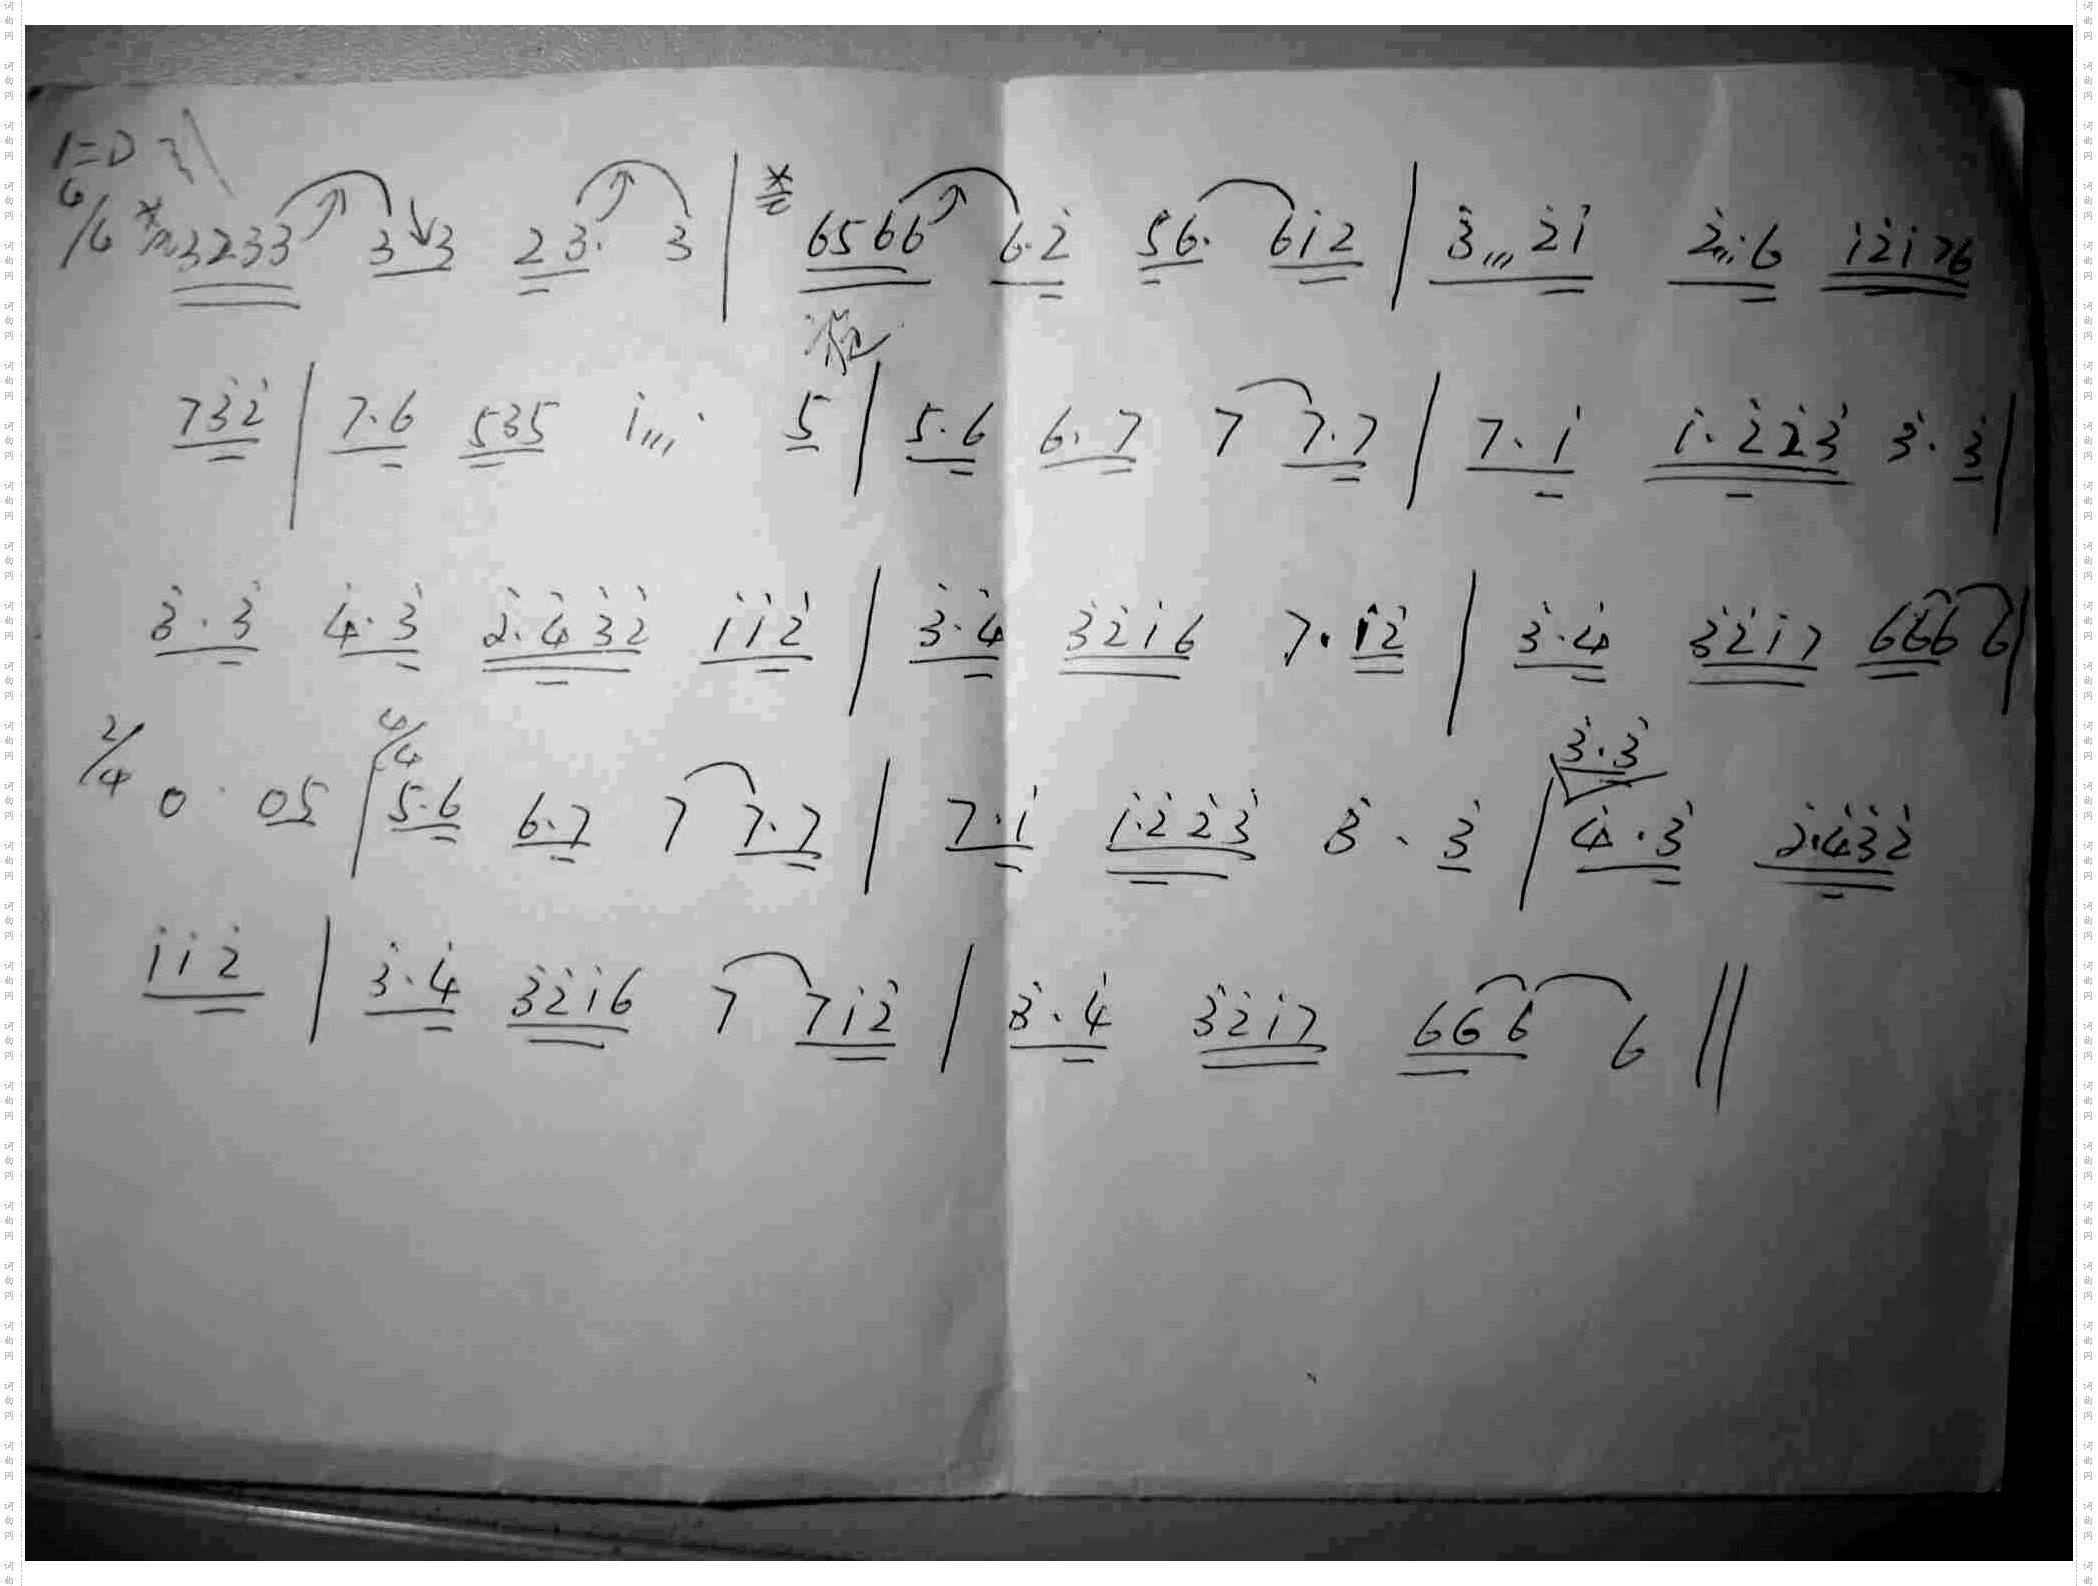 1=D
6/6 3233 3 3 23· 3 | 6566 6·2̇ 56· 6i2 | 3̇,,, 2̇i 2̇,,,·6 i2̇i76
73̇2̇ | 7·6 535 i,,,· 5 | 5·6 6·7 7 7·7 | 7·i i·2̇2̇3̇ 3̇·3̇ |
3̇·3̇ 4̇·3̇ 2̇·4̇3̇2̇ ii2̇ | 3̇·4̇ 3̇2̇i6 7·i2̇ | 3̇·4̇ 3̇2̇i7 666 6 |
2/4 0· 05 | 4/4 5·6 6·7 7 7·7 | 7·i i·2̇2̇3̇ 3̇·3̇ | 3̇·3̇ 4̇·3̇ 2̇·4̇3̇2̇
ii2̇ | 3̇·4̇ 3̇2̇i6 7 7i2̇ | 3̇·4̇ 3̇2̇i7 666 6 ||
词曲网